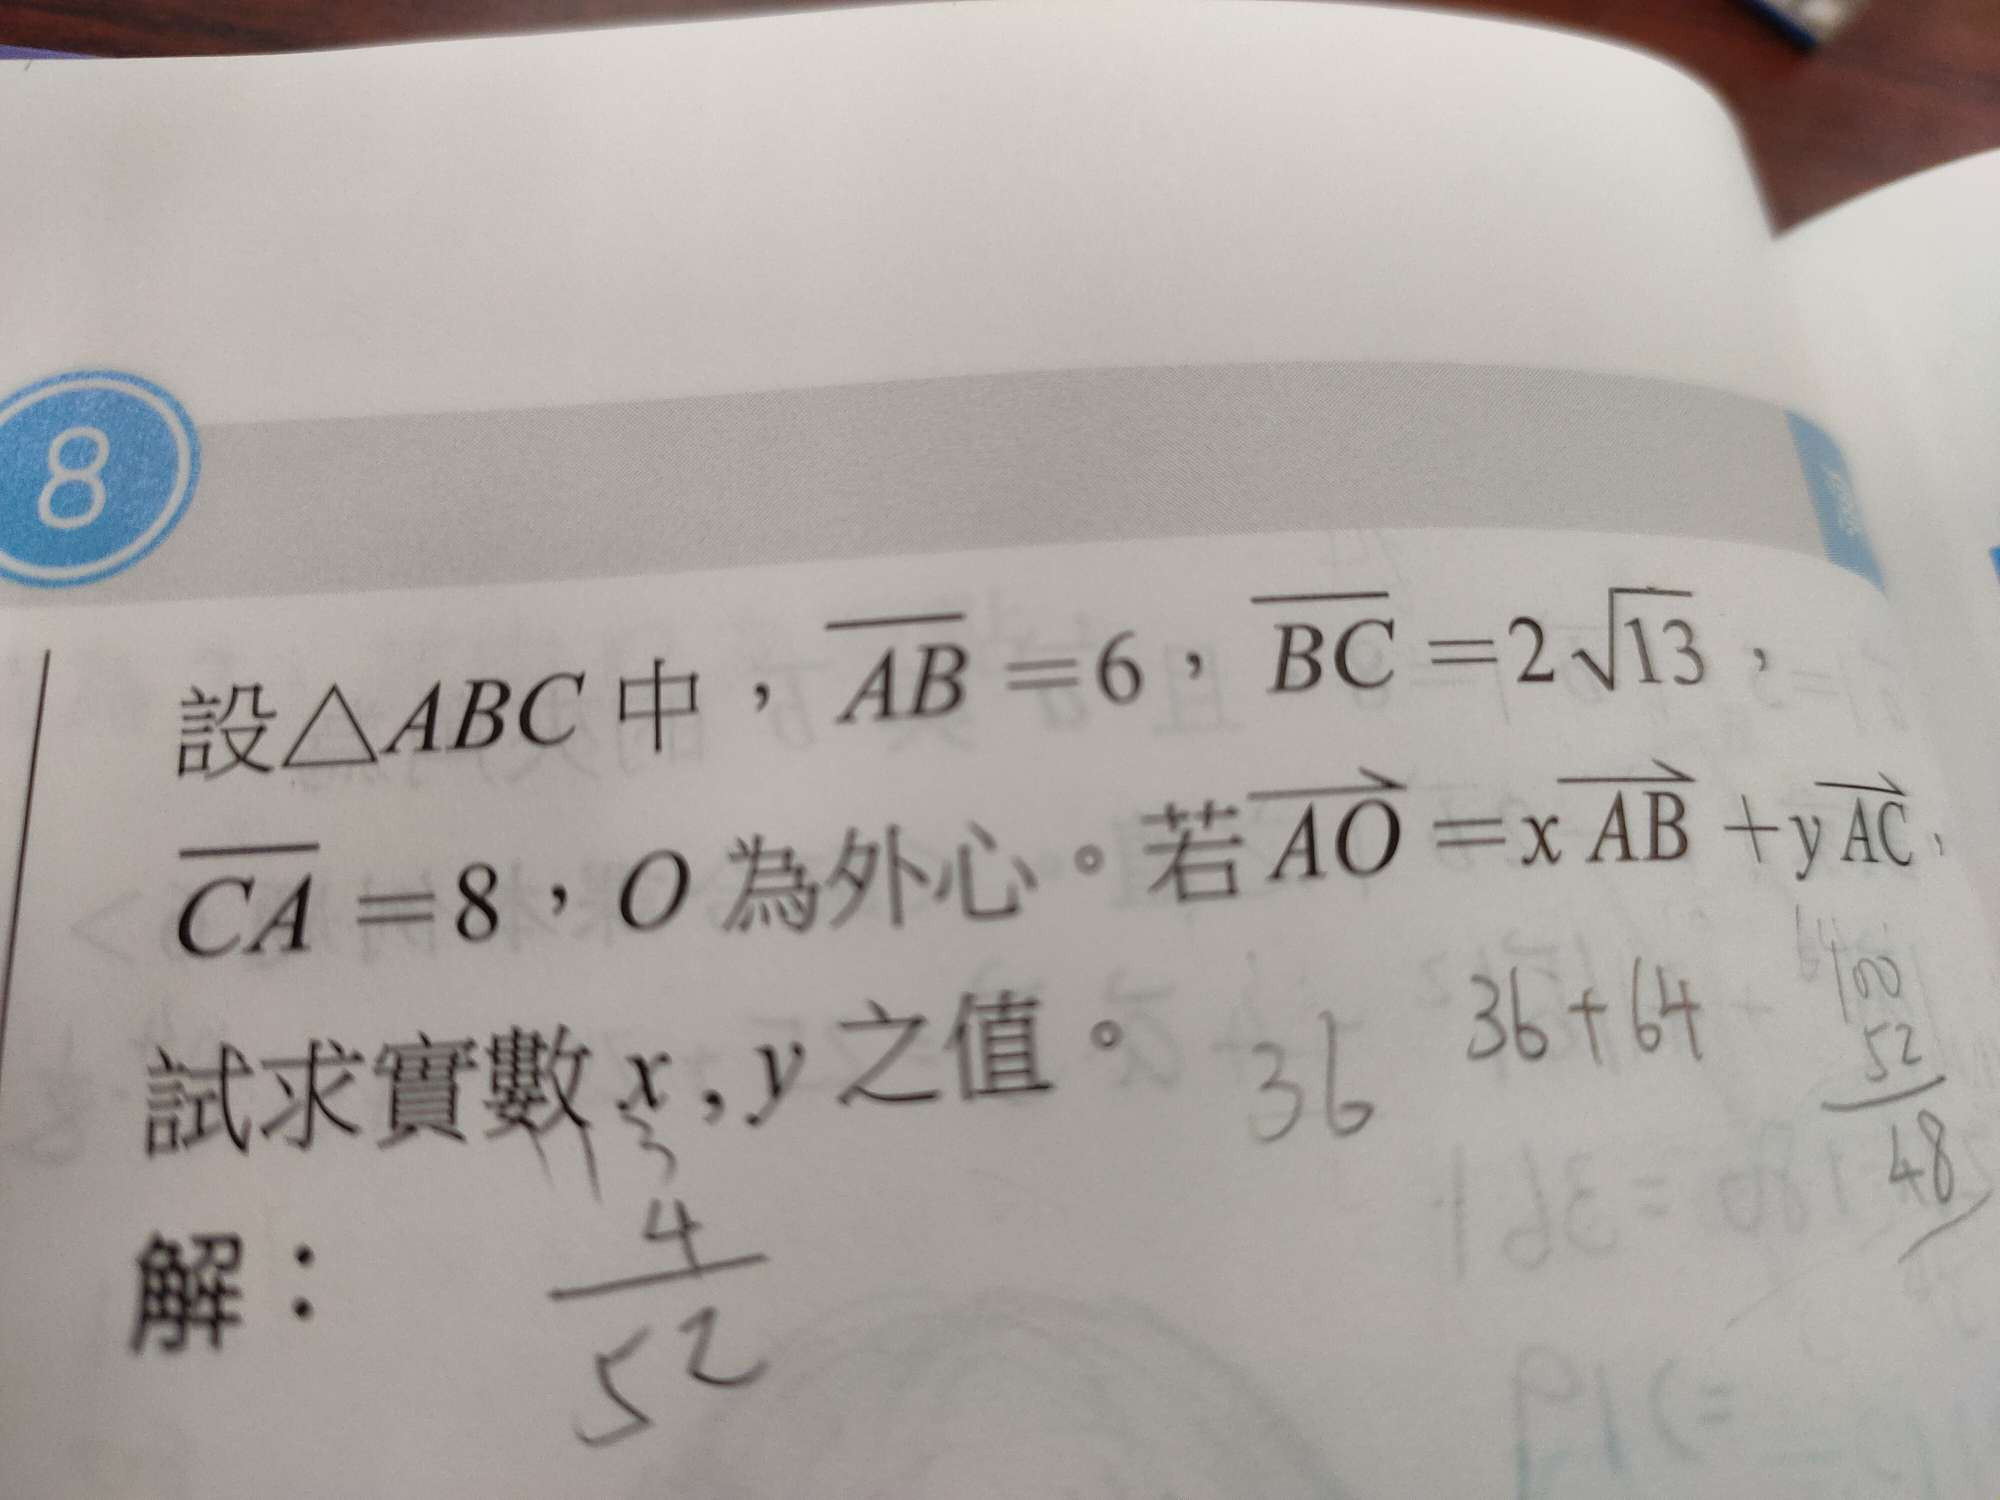 8
設△ABC中，AB=6，BC=2√13，
CA=8，O為外心。若AO=xAB+yAC，
試求實數x,y之值。
36
36+64
100
52
48
解：
13
4
52